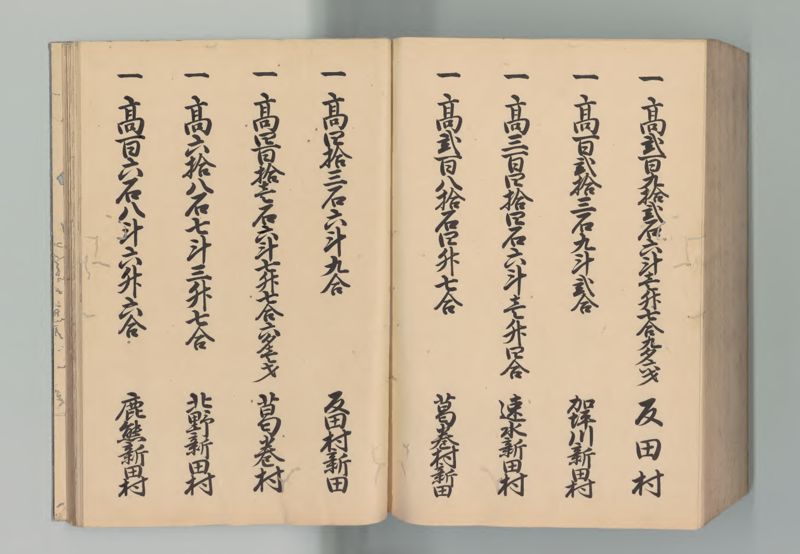 一 高弐百九拾弐石六斗壱升七合九夕六才 反田村
一 高百弐拾三石九斗弐合 加茂川新田村
一 高三百四拾四石六斗壱升四合 速水新田村
一 高弐百八拾石四升七合 葛巻村新田
一 高四拾三石六斗九合 反田村新田
一 高四百拾壱石六斗七升七合六夕壱才 葛巻村
一 高六拾八石七斗三升七合 北野新田村
一 高百六石八斗六升六合 鹿熊新田村